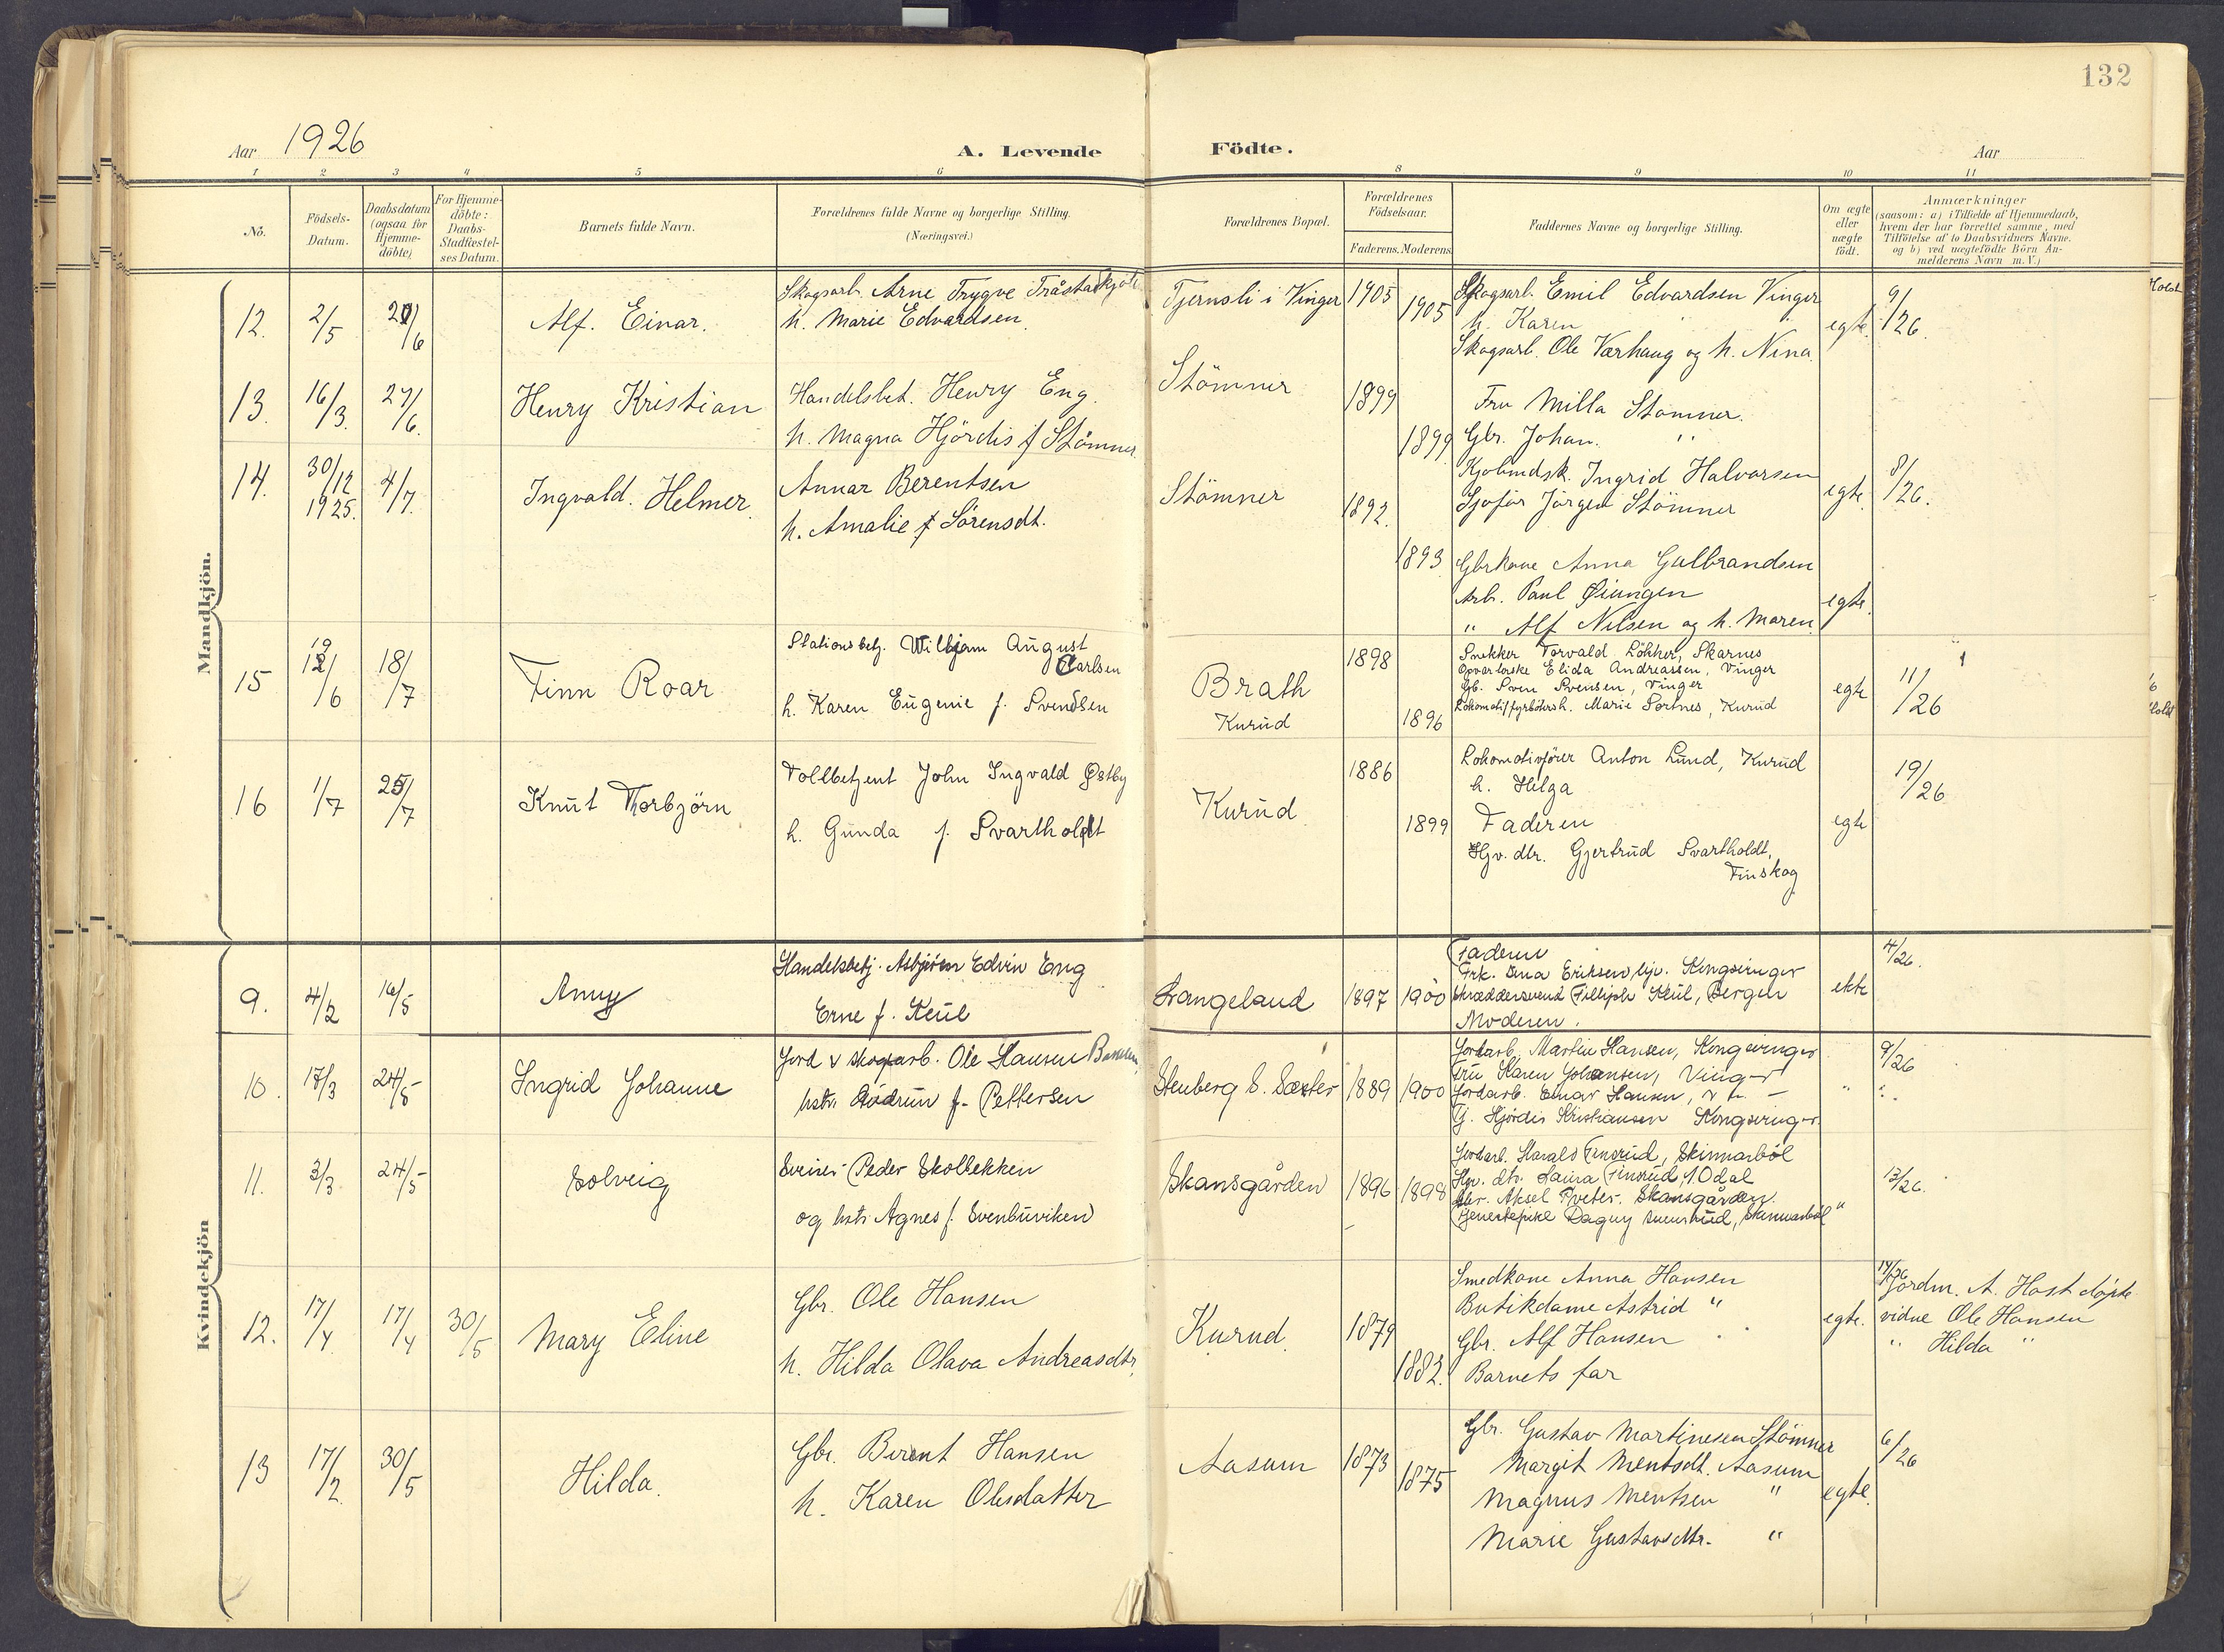 132
Aar 1926
A. Levende Födte.
Aar
1 2 3 4 5 6 8 9 10 11
No.
Födsels-Datum.
Daabsdatum (ogsaa for Hjemme-döbte)
For Hjemme-döbte: Daabs-Stadfæstel-ses Datum.
Barnets fulde Navn.
Forældrenes fulde Navne og borgerlige Stilling. (Næringsvei.)
Forældrenes Bopæl.
Forældrenes Födselsaar.
Faderens. Moderens.
Faddernes Navne og borgerlige Stilling.
Om ægte eller uægte födt.
Anmærkninger
(saasom: a) i Tilfælde af Hjemmedaab,
hvem der har forrettet samme, med
Tilföielse af to Daabsvidners Navne.
og b) ved uægtefödte Börn An-
melderens Navn m. V.)
Mandkjön.
12. 2/5 /6 Alf. Einar.
Skogsarb. Arne Trygve
h. Marie Edvardsen
Tjernsli i Vinger 1905 1905
Skogsarb. Emil Edvardsen Vinger
h. Karen "
Skogsarb. Ole Værhaug og h. Nina.
egte. 9/26.
13. 16/3. 27/6. Henry Kristian
Handelsbet. Henry Eng.
h. Magna Hjördis f Stömner
Stömner 1899 1899
Fru Milla Stömner.
Gbr. Johan. "
Ingrid Halvorsen
Sjofør Jörgen Stömner
egte 8/26.
14. 30/12 1925. 4/7. Ingvald. Helmer.
Annar Berentsen
h. Amalie f Sörensdt.
Stömner 1892. 1893
Gbrkone Anna Gulbrandsen
Arb. Paul Øiungen
" Alf Nilsen og h. Maren
egte.
15 12/6 19 18/7 Finn Roar
Stationsbetj. Willjam August
Carlsen
h. Karen Eugenie f. Svendsen
Brath
Kurud
1898 1896
Snekker Torvald Lökker, Skarnes
Opvarterske Elida Andreassen, Vinger
Gb. Sven Svensen, Vinger
Lokomotivfyrbötersh. Marie Sørnes, Kurud
egte 11/26
16 1/7 25/7 Knut Thorbjörn
Tollbetjent John Ingvald Østby
h. Gunda f. Svartholdt
Kurud. 1886 1899
Lokomotivfører Anton Lund, Kurud
h. Helga
Faderen
Hgv. dtr. Gjertrud Svartholdt,
Finskog
egte 19/26
Kvindekjön
9. 4/2 16/5 Anny
Handelsbetj. Asbjørn Edvin Eng
Erne f. Keul
Langeland 1897 1900
Faderen
Frk. Eriksen, Kongsvinger
Skræddersvend Fillip Keul, Bergen
Moderen.
ekte 4/26.
10. 17/3 24/5 Ingrid Johanne
Jord v skogarb. Ole Hansen
hstr. Gudrun f. Pettersen
Stenberg S. Sæter 1889 1900
Jordarb. Martin Hansen, Kongsvinger
Fru Karen Johansen, Vinger
Jordarb. Einar Hansen,
Tj. Hjördis Kristiansen Kongsvinger.
" 9/26
11. 3/3 24/5 Solveig
Sveiser Peder Skolbekken
og hstr. Agnes f. Svenbuviken
Skansgården 1896 1898
Jordarb. Harald Finsrud, Skinnarböl
Hgv. dtr. Laura Finsrud, N. Odal
Aksel Skansgården.
Tjenestepike Dagny Skinnarböl
" 13/26.
12. 17/4 17/4 30/5 Mary Eline
Gbr. Ole Hansen
h. Hilda Olava Andreasdtr.
Kurud. 1879 1882.
Smedkone Anna Hansen
Butikdame Astrid "
Gbr. Alf Hansen
Barnets far
egte.
17/26 Jordm. A. Hast döpte
vidne Ole Hansen
" Hilda "
13 17/2 30/5 Hilda.
Gbr. Berent Hansen
h. Karen Olesdatter
Aasum 1873 1875
Gbr. Gustav Martinesen Stömner
Margit Mentsdt. Aasum
Magnus Mentsen "
Marie Gustavsdtr. "
egte. 6/26